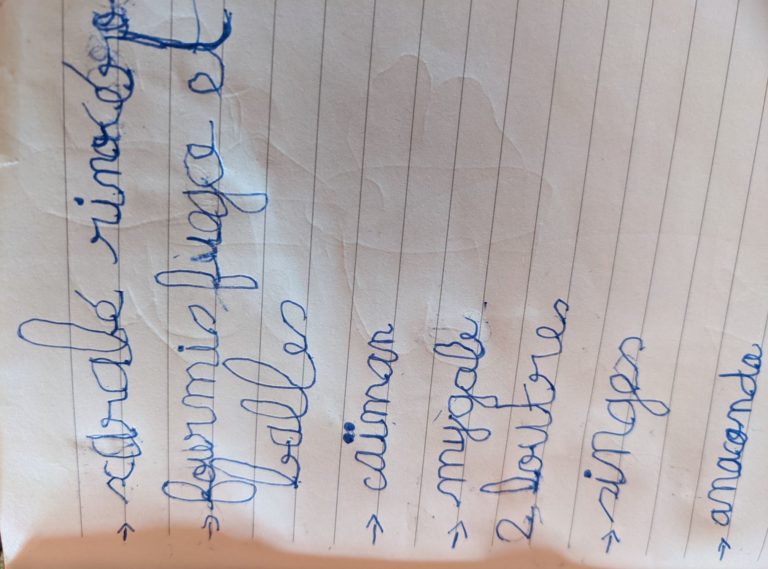 → xarabé rinocéro
→ fourmis fuego et
balles
→ caïman
→ mygale
2 loutres
→ singes
→ anaconda